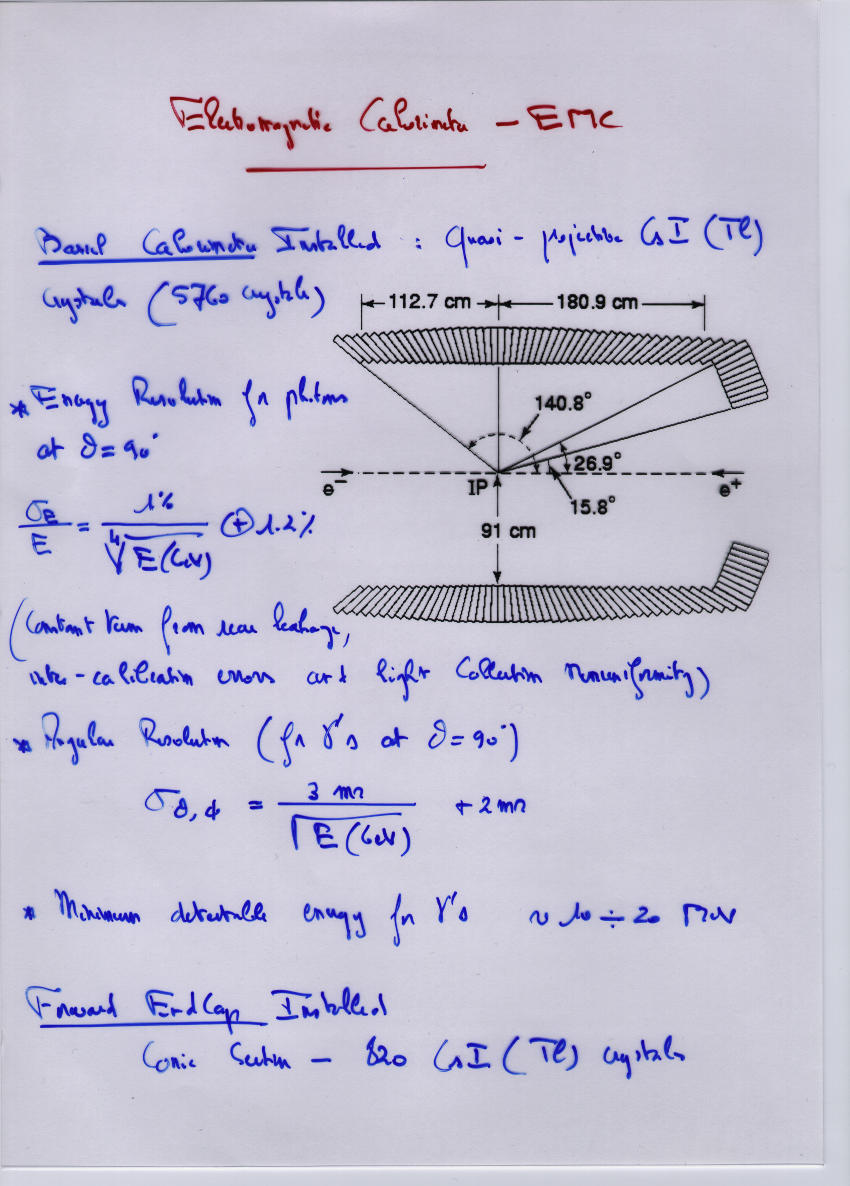 Electromagnetic Calorimeter – EMC
Barrel Calorimeter Installed : Quasi - projective CsI (Tl)
crystals (5760 crystals)
112.7 cm
180.9 cm
* Energy Resolution for photons
at θ = 90°
140.8°
26.9°
15.8°
e⁻
IP
e⁺
91 cm
σ_E/E = 1% / ∜E(GeV) ⊕ 1.2%
(constant term from rear leakage,
inter-calibration errors and light collection nonuniformity)
* Angular Resolution (for γ's at θ = 90°)
σ_θ,ϕ = 3 mr / √E(GeV) + 2 mr
* Minimum detectable energy for γ's ~ 10 ÷ 20 MeV
Forward EndCap Installed
Conic Section – 820 CsI (Tl) crystals